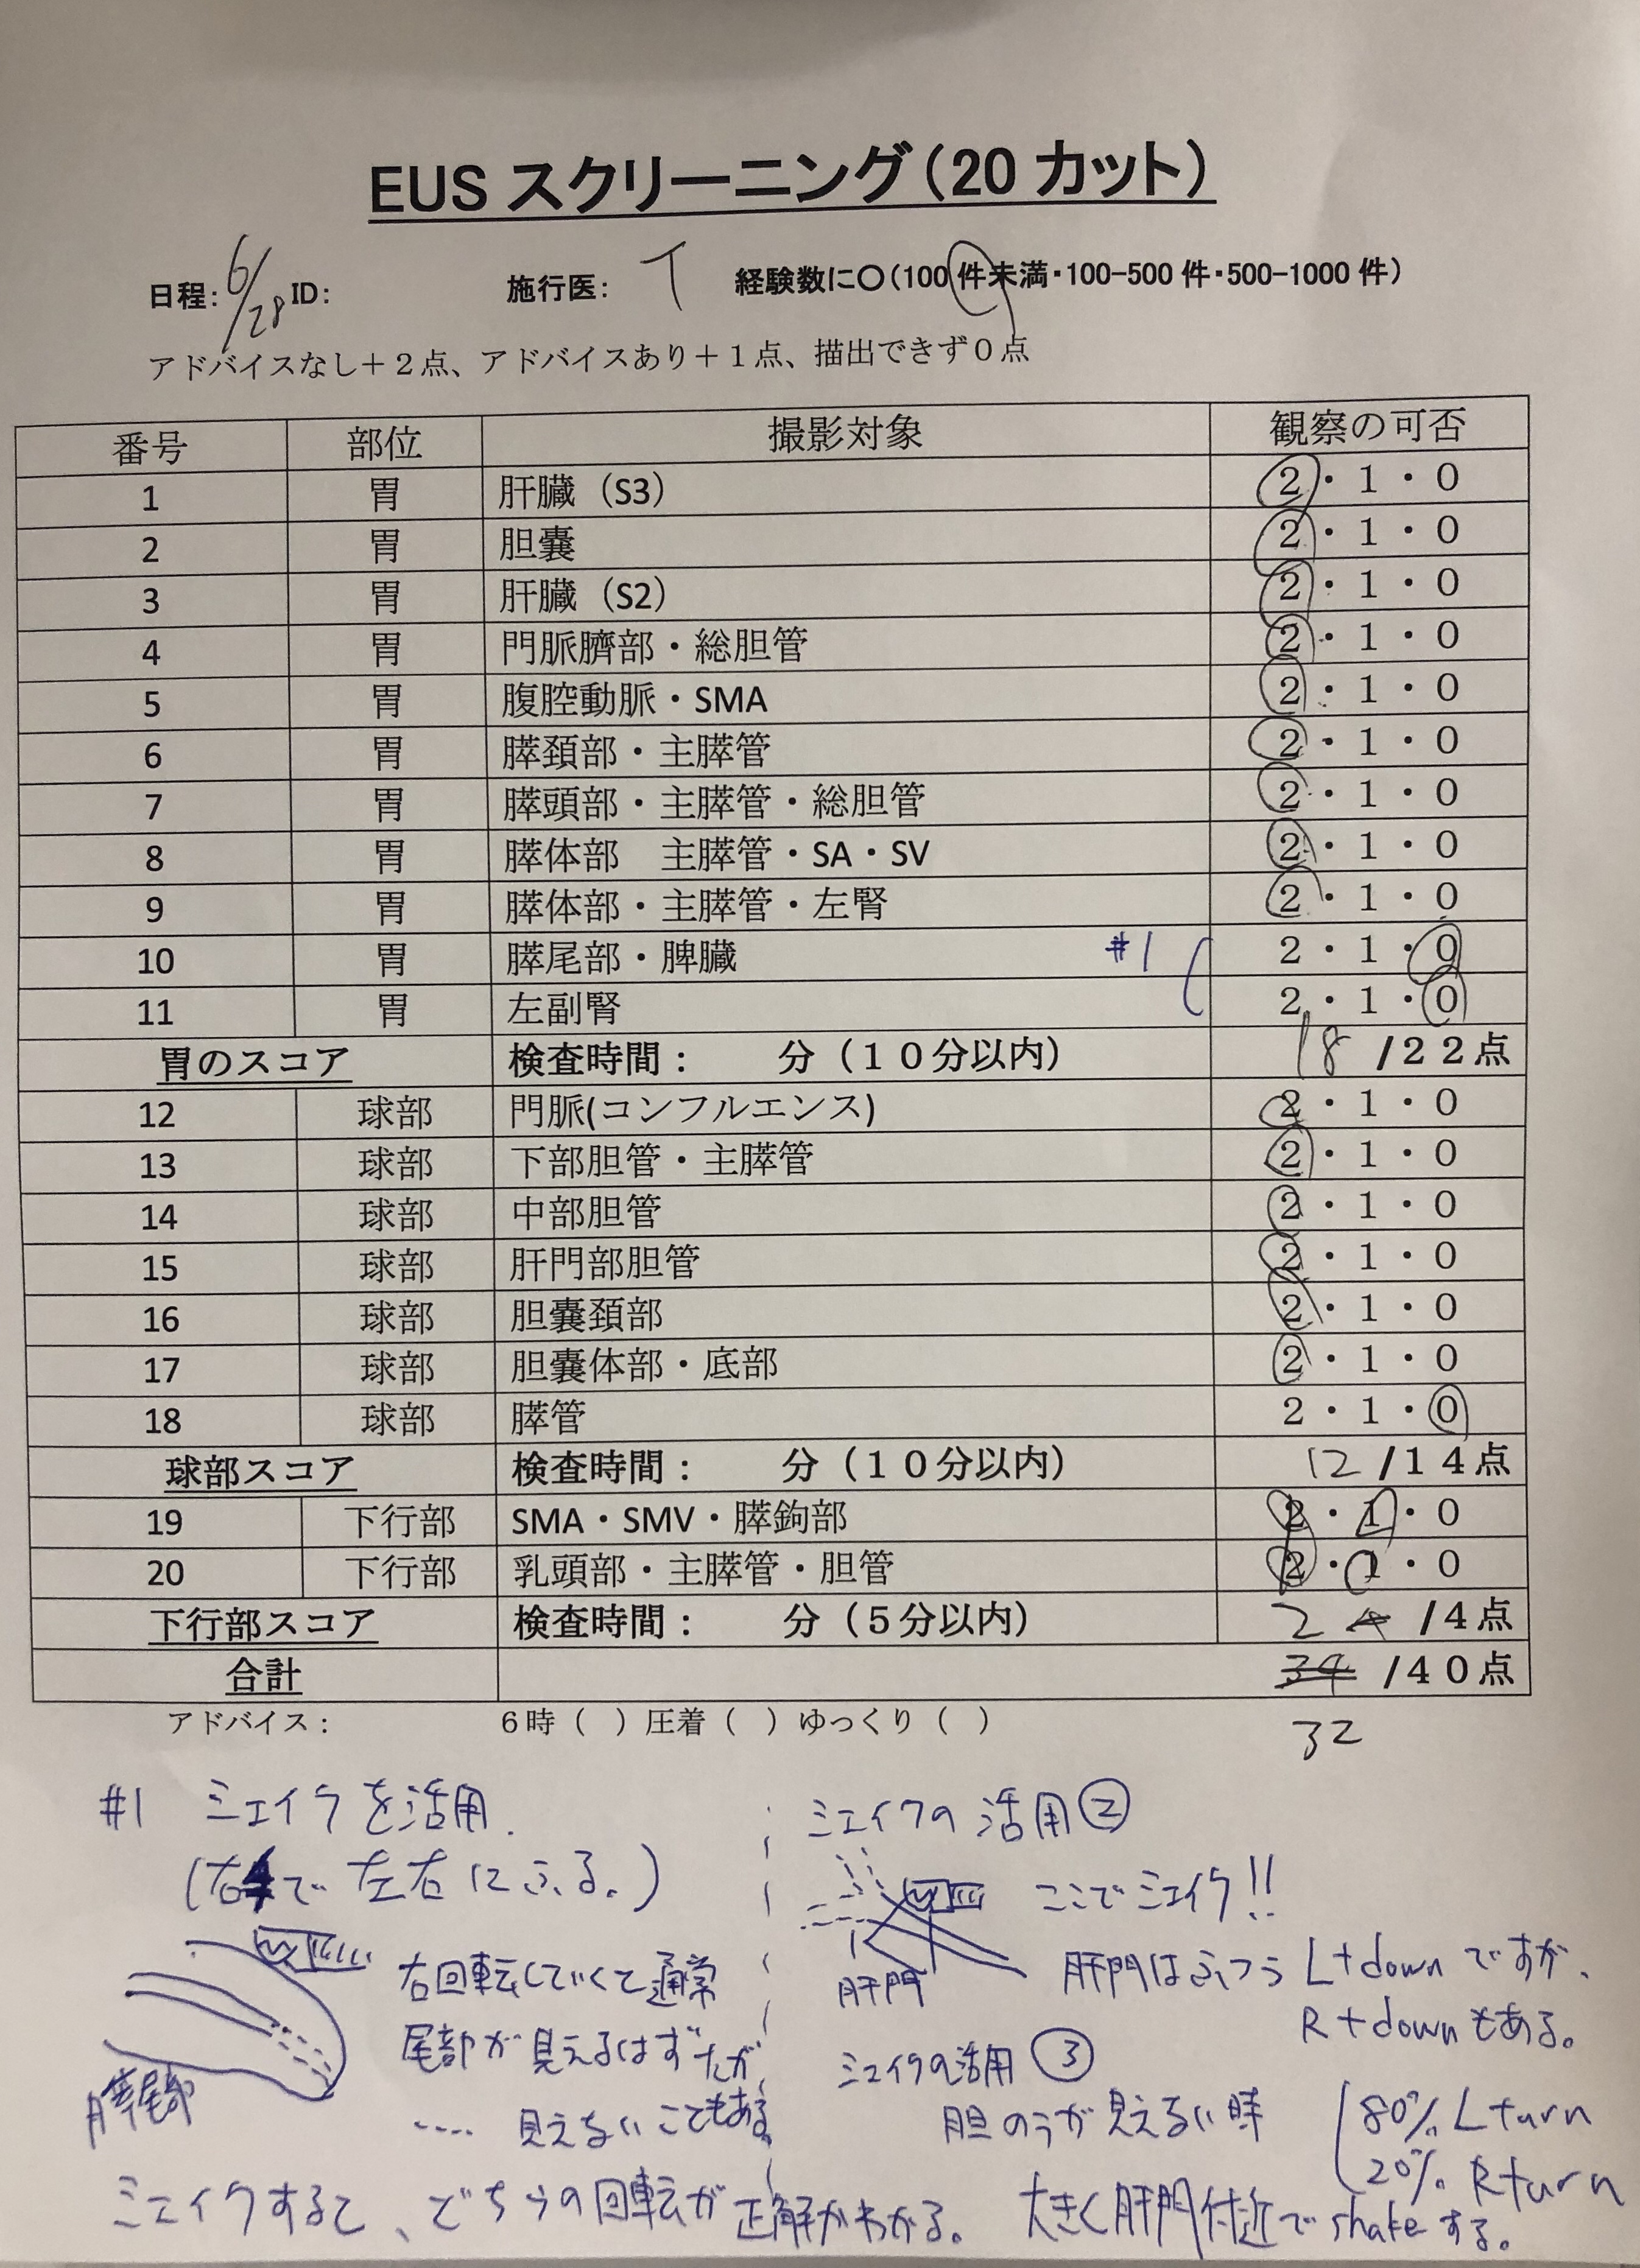 EUS スクリーニング（20 カット）
日程：6/28 ID： 施行医： T 経験数に〇（100 件未満・100-500 件・500-1000 件）
アドバイスなし＋２点、アドバイスあり＋１点、描出できず０点
番号 部位 撮影対象 観察の可否
1 胃 肝臓（S3） 2・1・0
2 胃 胆嚢 2・1・0
3 胃 肝臓（S2） 2・1・0
4 胃 門脈臍部・総胆管 2・1・0
5 胃 腹腔動脈・SMA 2・1・0
6 胃 膵頚部・主膵管 2・1・0
7 胃 膵頭部・主膵管・総胆管 2・1・0
8 胃 膵体部　主膵管・SA・SV 2・1・0
9 胃 膵体部・主膵管・左腎 2・1・0
10 胃 膵尾部・脾臓 #1 2・1・0
11 胃 左副腎 2・1・0
胃のスコア 検査時間：　　分（１０分以内） 18 /２２点
12 球部 門脈(コンフルエンス) 2・1・0
13 球部 下部胆管・主膵管 2・1・0
14 球部 中部胆管 2・1・0
15 球部 肝門部胆管 2・1・0
16 球部 胆嚢頚部 2・1・0
17 球部 胆嚢体部・底部 2・1・0
18 球部 膵管 2・1・0
球部スコア 検査時間：　　分（１０分以内） 12 /１４点
19 下行部 SMA・SMV・膵鉤部 2・1・0
20 下行部 乳頭部・主膵管・胆管 2・1・0
下行部スコア 検査時間：　　分（５分以内） 2 4 /４点
合計 34 /４０点
アドバイス： ６時（　）圧着（　）ゆっくり（　）
32
#1 シェイクを活用.
(右手で 左右にふる。)
右回転していくと通常
尾部が見えるはずだが、
‥‥ 見えないこともある。
膵尾部
シェイクすると、どちらの回転が正解かわかる。
シェイクの活用②
ここでシェイク!!
肝門
肝門はふつう L+downですが、
R+downもある。
シェイクの活用③
胆のうが見えない時
80% L turn
20% R turn
大きく肝門付近でshakeする。